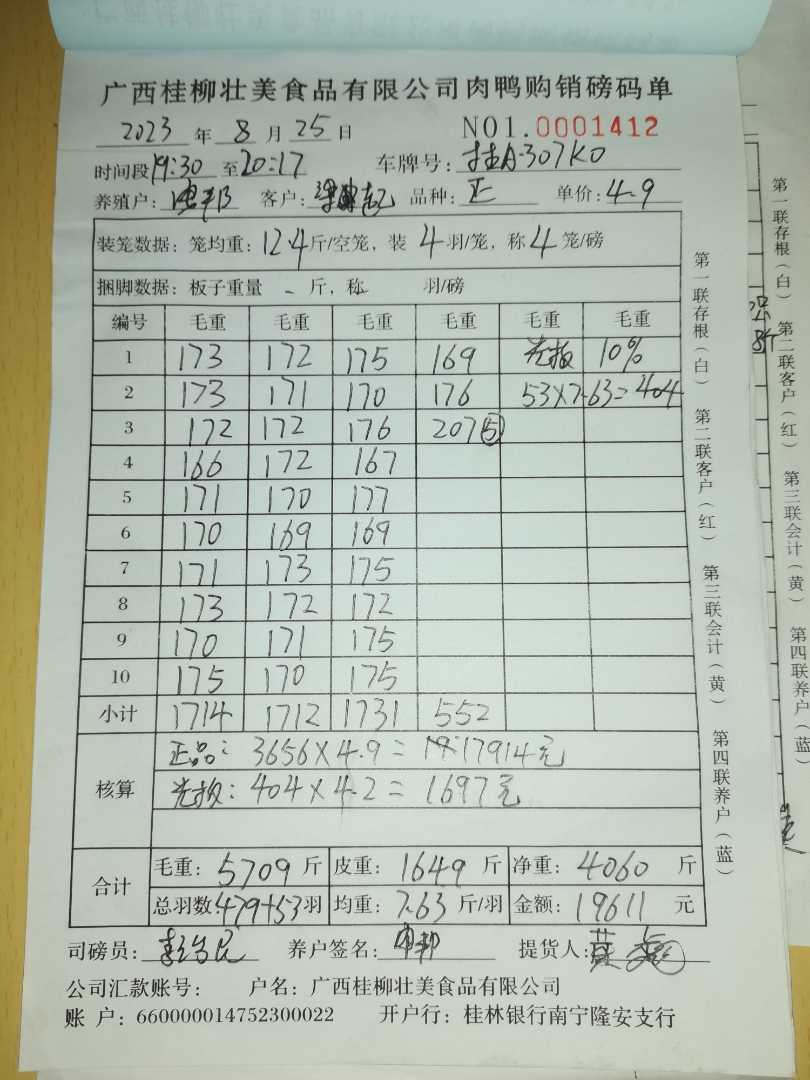 广西桂柳壮美食品有限公司肉鸭购销磅码单
2023 年 8 月 25 日 NO1.0001412
时间段 19:30 至 20:17 车牌号：桂A·307K0
养殖户： 客户： 品种：正 单价：4.9
装笼数据：笼均重：12.4 斤/空笼，装 4 羽/笼，称 4 笼/磅
捆脚数据：板子重量 - 斤，称 羽/磅
编号 毛重 毛重 毛重 毛重 毛重 毛重
1 173 172 175 169 10%
2 173 171 170 176 53×7.63=404
3 172 172 176 207 ⑤
4 166 172 167
5 171 170 177
6 170 169 169
7 171 173 175
8 173 172 172
9 170 171 175
10 175 170 175
小计 1714 1712 1731 552
核算
正品：3656×4.9= 17914元
404×4.2=1697元
合计
毛重：5709 斤 皮重：1649 斤 净重：4060 斤
总羽数：479+53 羽 均重：7.63 斤/羽 金额：19611 元
司磅员： 养户签名： 提货人：
公司汇款账号： 户名：广西桂柳壮美食品有限公司
账 户：660000014752300022 开户行：桂林银行南宁隆安支行
第一联存根（白） 第二联客户（红） 第三联会计（黄） 第四联养户（蓝）
第一联存根（白） 第二联客户（红） 第三联会计（黄） 第四联养户（蓝）